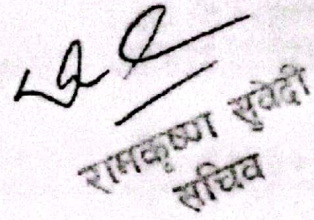 रामकृष्ण सुवेदी
सचिव